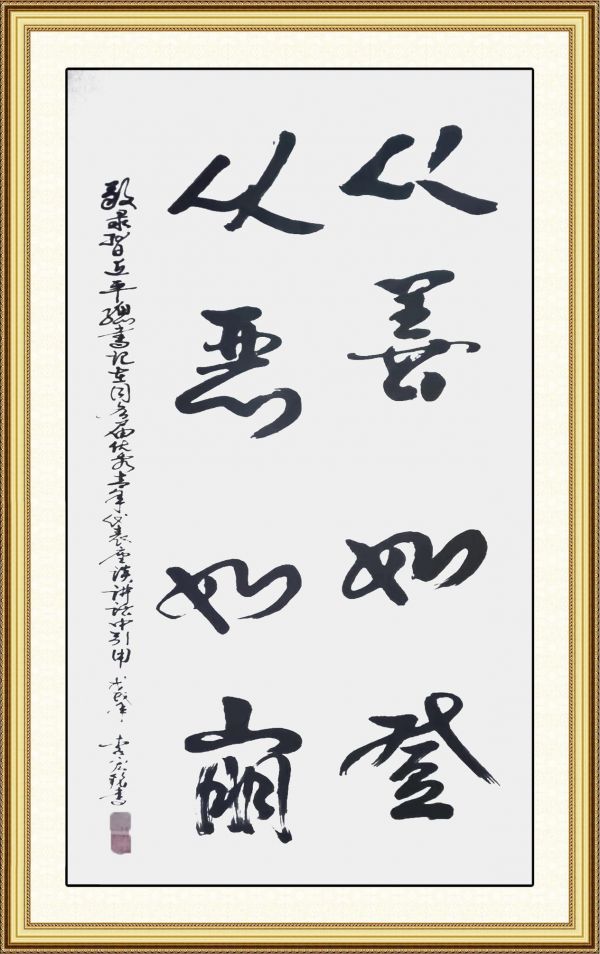 从善如登
从恶如崩
敬录習近平總書记在同各届优秀青年代表座谈讲话中引用 戊戌年 书